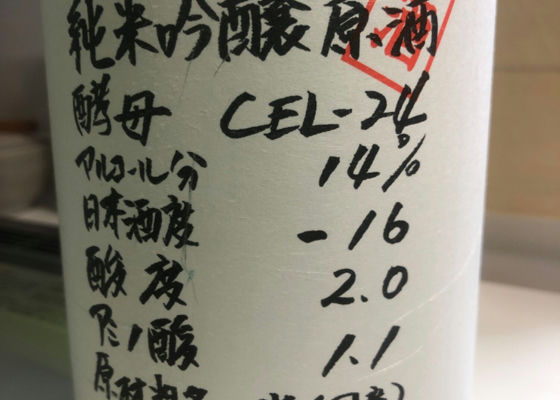 純米吟醸原酒
酵母 CEL-24
アルコール分 14%
日本酒度 -16
酸度 2.0
アミノ酸 1.1
原材料名